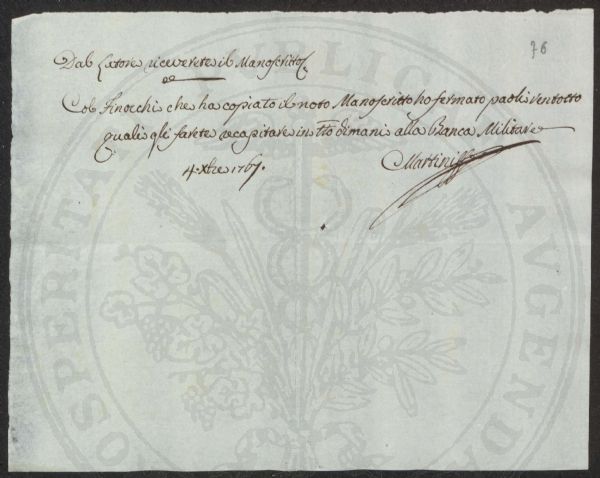 76
Dal Latore riceverete il Manoscritto.
Col Finocchi che ha copiato il noto Manoscritto ho fermato paoli ventotto
quali gli farete recapitare in tto dimani alla Banca Militare
4. Xbre 1767.
Martini
PUBLICAE AUGENDAE
PROSPERITATI